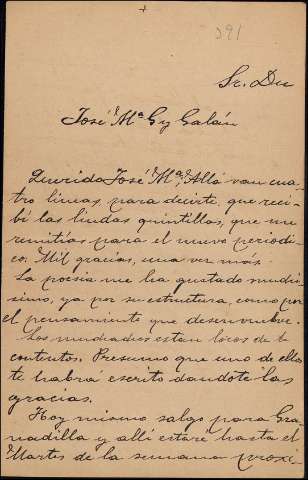 391
Sr. Dn
José Mª G y Galán
Querido José Mª; Allá van cua
tro lineas, para decirte, que reci
bi las lindas quintillas, que me
remitias para el nuevo periodi
co. Mil gracias, una vez más.
La poesia me ha gustado muchi
simo, ya por su estructura, como por
el pensamiento que desenvuelve.
Los muchachos estan locos de
contentos. Presumo que uno de ellos
te habra escrito dandote las
gracias.
Hoy mismo salgo para Gra
nadilla y alli estaré hasta el
Martes de la semana proxi